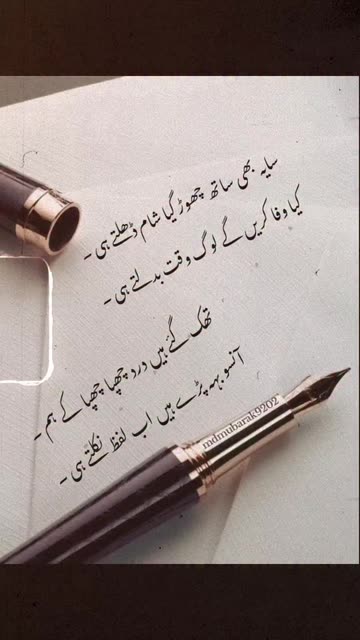 سایہ بھی ساتھ چھوڑ گیا شام ڈھلتے ہی ۔
کیا وفا کریں گے لوگ وقت بدلتے ہی ۔
تھک گئے ہیں درد چھپا چھپا کے ہم ۔
آنسو بہہ پڑے ہیں اب لفظ نکلتے ہی ۔
mdmubarak9202